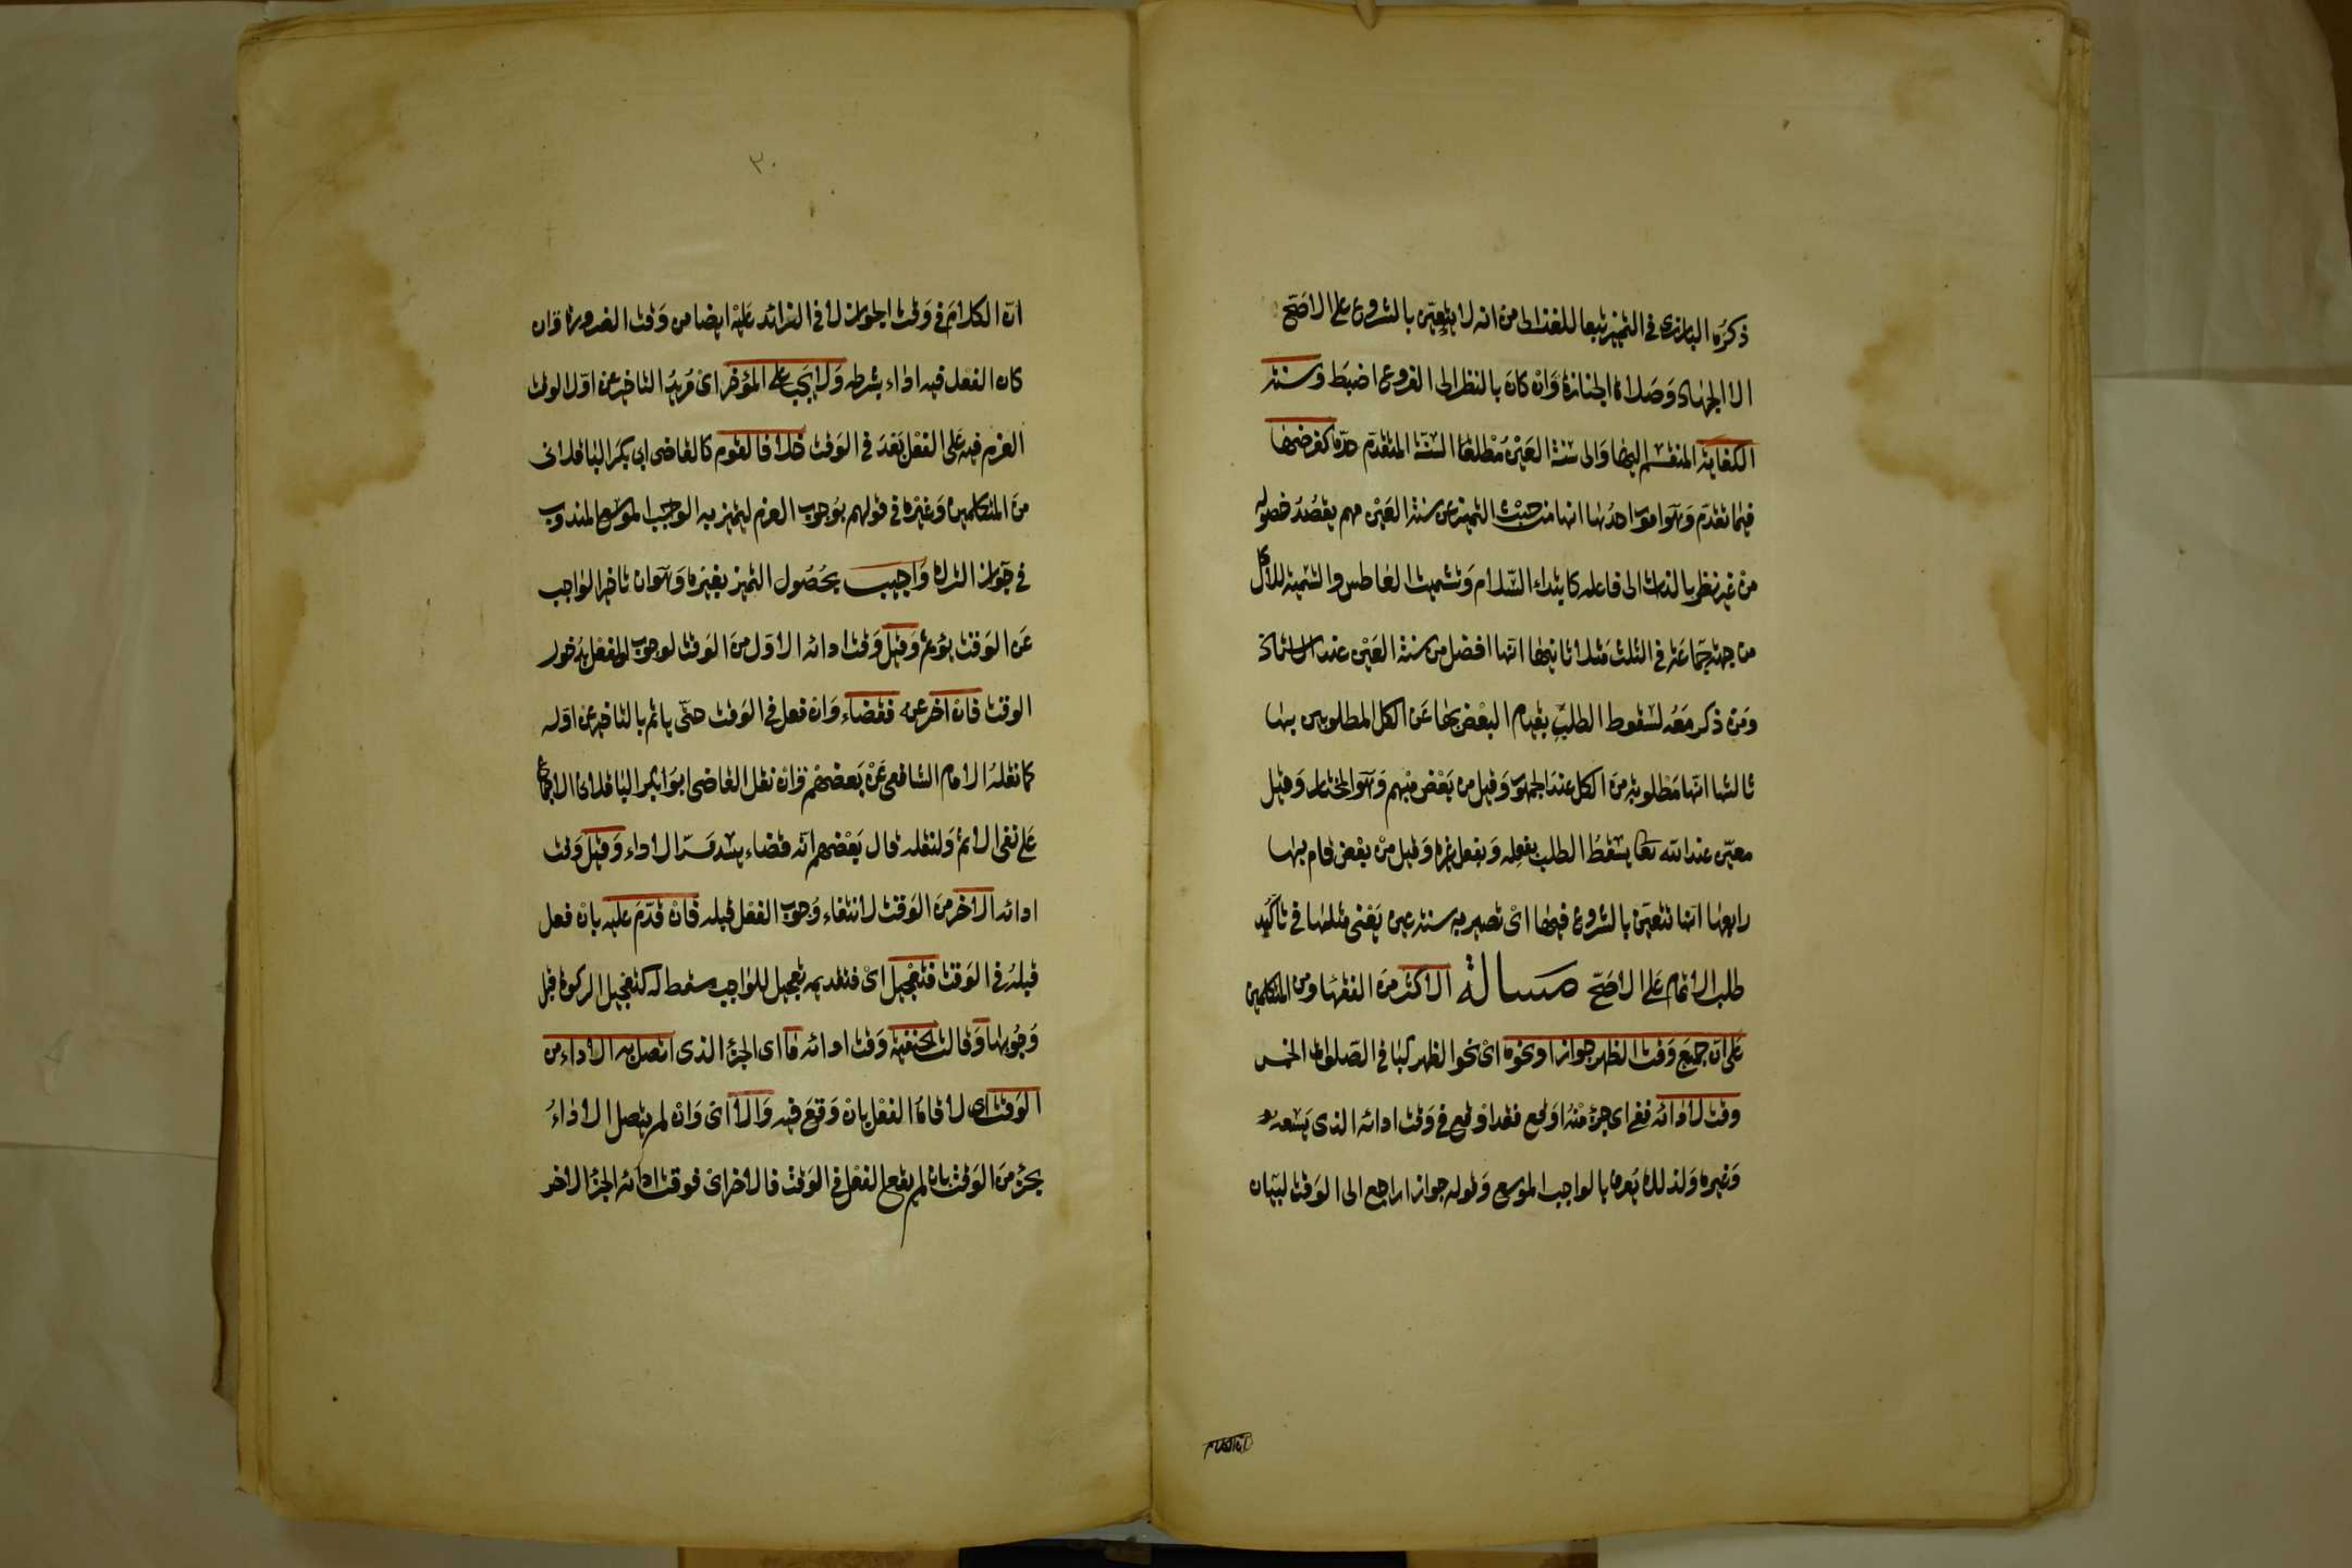 ذكره البارزى فى التمييز تبعا للغزالى من انه لا يتعين بالشروع على الاصح
الا الجهاد وصلاة الجنازة وان كان بالنظر الى الفروع اضبط وسنة
الكفاية المنقسم اليها والى سنة العين مطلقا السنة المتقدم حده كفرضها
فيما تقدم وهو امور احدها انها من حيث التميز عن سنة العين مهم يقصد حصوله
من غير نظر بالذات الى فاعله كابتداء السلام وتشميت العاطس والتسمية للاكل
من جهة جماعة فى الثلث مثلا ثانيها انها افضل من سنة العين عند الاستاذ
ومن ذكر معه لسقوط الطلب بقيام البعض بها عن الكل المطلوبين بها
ثالثها انها مطلوبة من الكل عند الجمهور وقيل من بعض مبهم وهو المختار وقيل
معين عند الله تعا يسقط الطلب بفعله وبفعل غيره وقيل من بعض قام بها
رابعها انها تتعين بالشروع فيها اى تصير به سنة عين يعنى مثلها فى تاكيد
طلب الاتمام على الاصح مسالة الاكثر من الفقها ومن المتكلمين
على ان جميع وقت الظهر جوازا ونحوه اى نحو الظهر كباقى الصلوات الخمس
وقت لادائه ففى اى جزء منه اوقع فقد اوقع فى وقت ادائه الذى يسعه
وغيره ولذلك يعرف بالواجب الموسع وقوله جوازا راجع الى الوقت لبيان
ان الكلام
٣٠
ان الكلام فى وقت الجواز لا فى الزائد عليه ايضا من وقت الضرورة وان
كان الفعل فيه اداء بشرطه ولا يجب على المؤخر اى مريد التاخير عن اول الوقت
العزم فيه على الفعل بعد فى الوقت خلافا لقوم كالقاضى ابى بكر الباقلانى
من المتكلمين وغيره فى قولهم بوجوب العزم ليتميز به الواجب الموسع المندوب
فى جواز الترك واجيب بحصول التميز بغيره وهو ان تاخير الواجب
عن الوقت يؤثم وقيل وقت ادائه الاول من الوقت لوجوب الفعل بدخول
الوقت فان اخر عنه فقضاء وان فعل فى الوقت حتى ياثم بالتاخير عن اوله
كما نقله الامام الشافعى عن بعضهم وان نقل القاضى ابو بكر الباقلانى الاجماع
على نفى الاثم ولنقله قال بعضهم انه قضاء يسد مسد الاداء وقيل وقت
ادائه الاخر من الوقت لانتفاء وجوب الفعل قبله فان قدم عليه بان فعل
قبله فى الوقت فتعجيل اى فتقديمه تعجيل للواجب مسقط له كتعجيل الزكوة قبل
وجوبها وقالت الحنفية وقت ادائه ما اى الجزء الذى اتصل به الاداء من
الوقت اى لاقاه الفعل بان وقع فيه والا اى وان لم يتصل الاداء
بجزء من الوقت بان لم يقع الفعل فى الوقت فالاخر اى فوقت ادائه الجزء الاخر